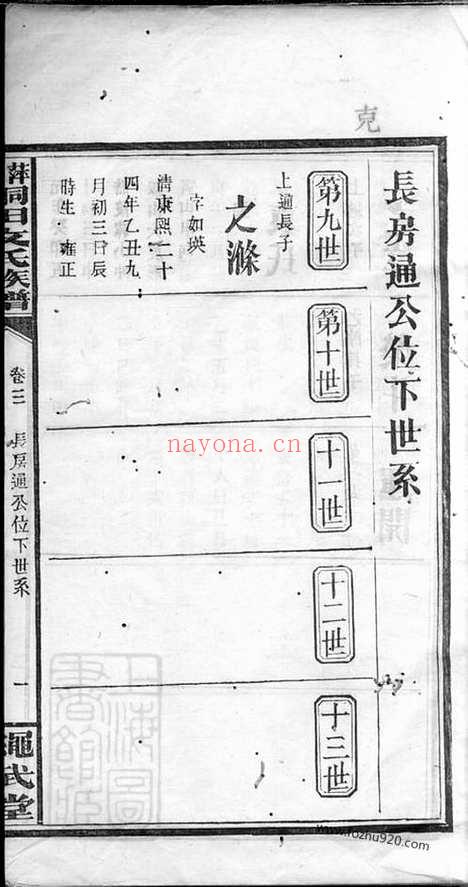 克
長房通公位下世系
第九世
第十世
十一世
十二世
十三世
上通長子
之滌
字如瑛
清康熙二十
四年乙丑九
月初三日辰
時生 雍正
田文氏族譜
卷三 長房通公位下世系
一
繩武堂
nayona.cn
上海圖書館藏
www.fozhu920.com